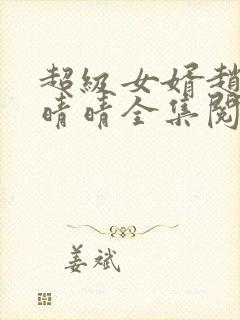 超级女婿趙
晴晴全集閱
姜斌